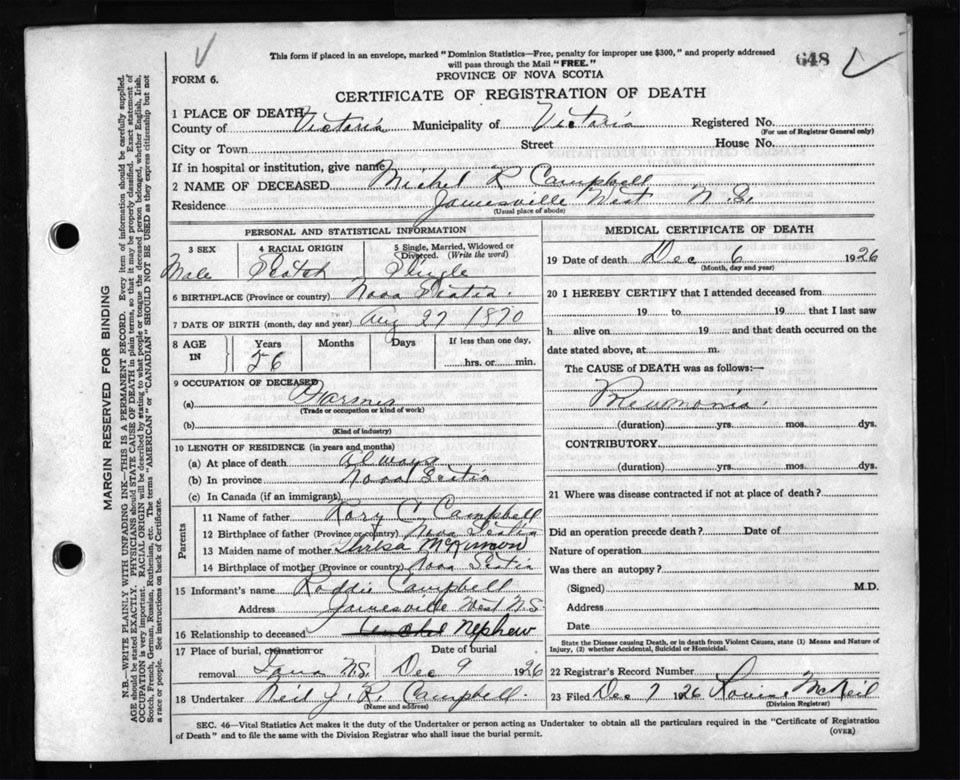 This form if placed in an envelope, marked "Dominion Statistics—Free, penalty for improper use $300," and properly addressed
will pass through the Mail "FREE."
648
FORM 6.
PROVINCE OF NOVA SCOTIA
CERTIFICATE OF REGISTRATION OF DEATH
1 PLACE OF DEATH
County of Victoria Municipality of Victoria Registered No.
(For use of Registrar General only)
City or Town Street House No.
If in hospital or institution, give name
2 NAME OF DECEASED Michel R Campbell
Residence Jamesville West N.S.
(Usual place of abode)
PERSONAL AND STATISTICAL INFORMATION
3 SEX 4 RACIAL ORIGIN 5 Single, Married, Widowed or Divorced. (Write the word)
Male Scotch Single
6 BIRTHPLACE (Province or country) Nova Scotia.
7 DATE OF BIRTH (month, day and year) Aug 27 1870
8 AGE IN Years Months Days If less than one day,
56 hrs. or min.
9 OCCUPATION OF DECEASED
(a) Farmer
(Trade or occupation or kind of work)
(b)
(Kind of industry)
10 LENGTH OF RESIDENCE (in years and months)
(a) At place of death always
(b) In province Nova Scotia
(c) In Canada (if an immigrant)
Parents
11 Name of father Rory C Campbell
12 Birthplace of father (Province or country) Nova Scotia
13 Maiden name of mother Theresa McKinnon
14 Birthplace of mother (Province or country) Nova Scotia
15 Informant's name Roddie Campbell
Address Jamesville West N.S
16 Relationship to deceased Nephew
17 Place of burial, cremation or removal Iona N.S. Date of burial Dec 9 1926
18 Undertaker Neil J. R. Campbell.
(Name and address)
MEDICAL CERTIFICATE OF DEATH
19 Date of death Dec 6 1926
(Month, day and year)
20 I HEREBY CERTIFY that I attended deceased from
19 to 19 that I last saw
h alive on 19 and that death occurred on
date stated above, at m.
The CAUSE of DEATH was as follows:—
Pneumonia.
(duration) yrs. mos. dys.
CONTRIBUTORY
(duration) yrs. mos. dys.
21 Where was disease contracted if not at place of death?
Did an operation precede death? Date of
Nature of operation
Was there an autopsy?
(Signed) M.D.
Address
Date
State the Disease causing Death, or in death from Violent Causes, state (1) Means and Nature of
Injury, (2) whether Accidental, Suicidal or Homicidal.
22 Registrar's Record Number
23 Filed Dec 7 1926 McNeil
(Division Registrar)
SEC. 46—Vital Statistics Act makes it the duty of the Undertaker or person acting as Undertaker to obtain all the particulars required in the "Certificate of Registration
of Death" and to file the same with the Division Registrar who shall issue the burial permit.
(OVER)
MARGIN RESERVED FOR BINDING
N.B.—WRITE PLAINLY WITH UNFADING INK—THIS IS A PERMANENT RECORD. Every item of information should be carefully supplied.
AGE should be stated EXACTLY. PHYSICIANS should STATE CAUSE OF DEATH in plain terms, so that it may be properly classified. Exact statement of
OCCUPATION is very important. RACIAL ORIGIN will be described by stating to what people or tongue the deceased person belonged, whether English, Irish,
Scotch, French, German, Russian, Ruthenian, etc. The terms "AMERICAN" or "CANADIAN" SHOULD NOT BE USED as they express citizenship but not
a race or people. See instructions on back of Certificate.